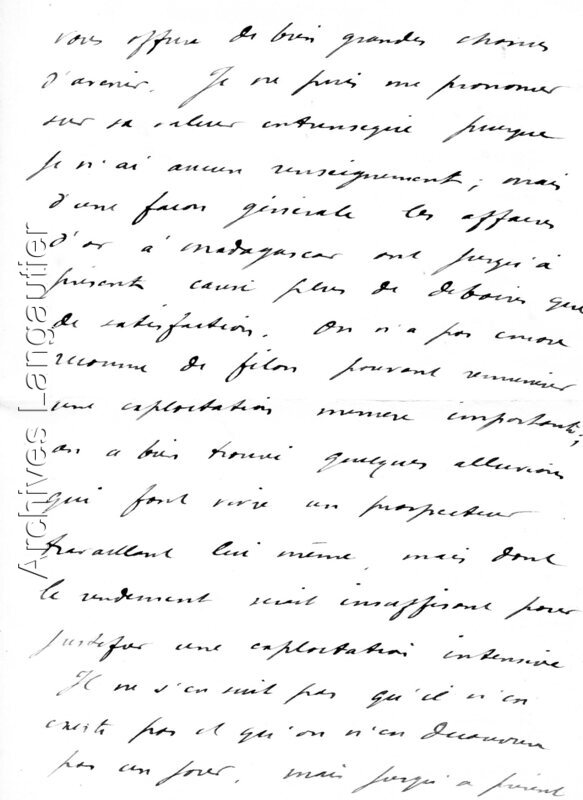 vous offrir de bien grandes chances
d'avenir. Je ne puis me prononcer
sur sa valeur intrinsèque puisque
je n'ai aucun renseignement ; mais
d'une façon générale les affaires
d'or à Madagascar ont jusqu'à
présent causé plus de déboires que
de satisfaction. On n'a pas encore
reconnu de filon pouvant rémunérer
une exploitation minière importante ;
on a bien trouvé quelques alluvions
qui font vivre un prospecteur
travaillant lui même, mais dont
le rendement serait insuffisant pour
justifier une exploitation intensive
Il ne s'en suit pas qu'il n'en
existe pas et qu'on n'en découvrira
pas un jour, mais jusqu'à présent
Archives Langautier